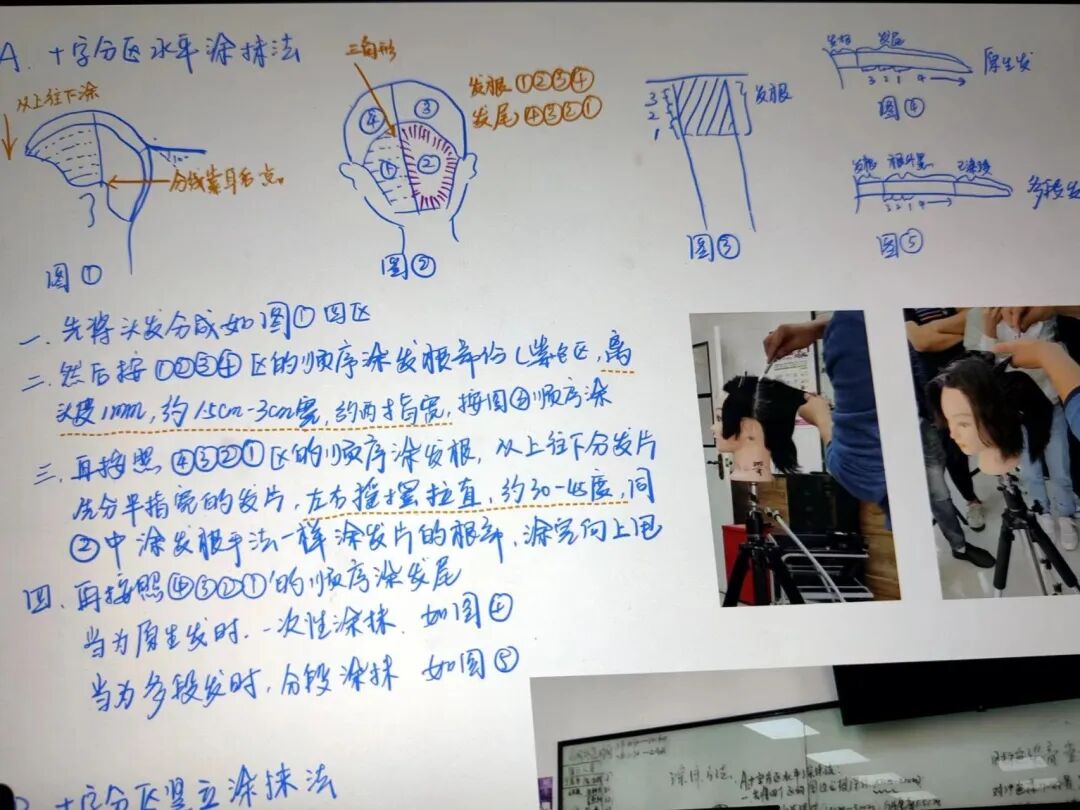 A. 十字分区水平涂抹法
从上往下涂
分线靠耳后点。
图①
三角形
④ ③
① ②
发根①②③④
发尾④③②①
图②
3
2
1
发根
图③
发根 发尾
3 2 1 4
原生发
图④
发根
3 2 1 4
多段发
图⑤
一. 先将头发分成如图① 四区
二. 然后按①②③④区的顺序涂发根部份(紫色区,离
头皮1mm,约1.5cm-3cm宽,约两指宽,按图③顺序涂
三. 再按照④③②①区的顺序涂发根,从上往下分发片
先分半指宽的发片,左右摇摆拉直,约30-45度,同
②中涂发根手法一样涂发片的根部,涂完向上甩
四. 再按照④③②①的顺序涂发尾
当为原生发时,一次性涂抹. 如图④
当为多段发时,分段涂抹 如图⑤
十字分区竖立涂抹法
涂抹方法.